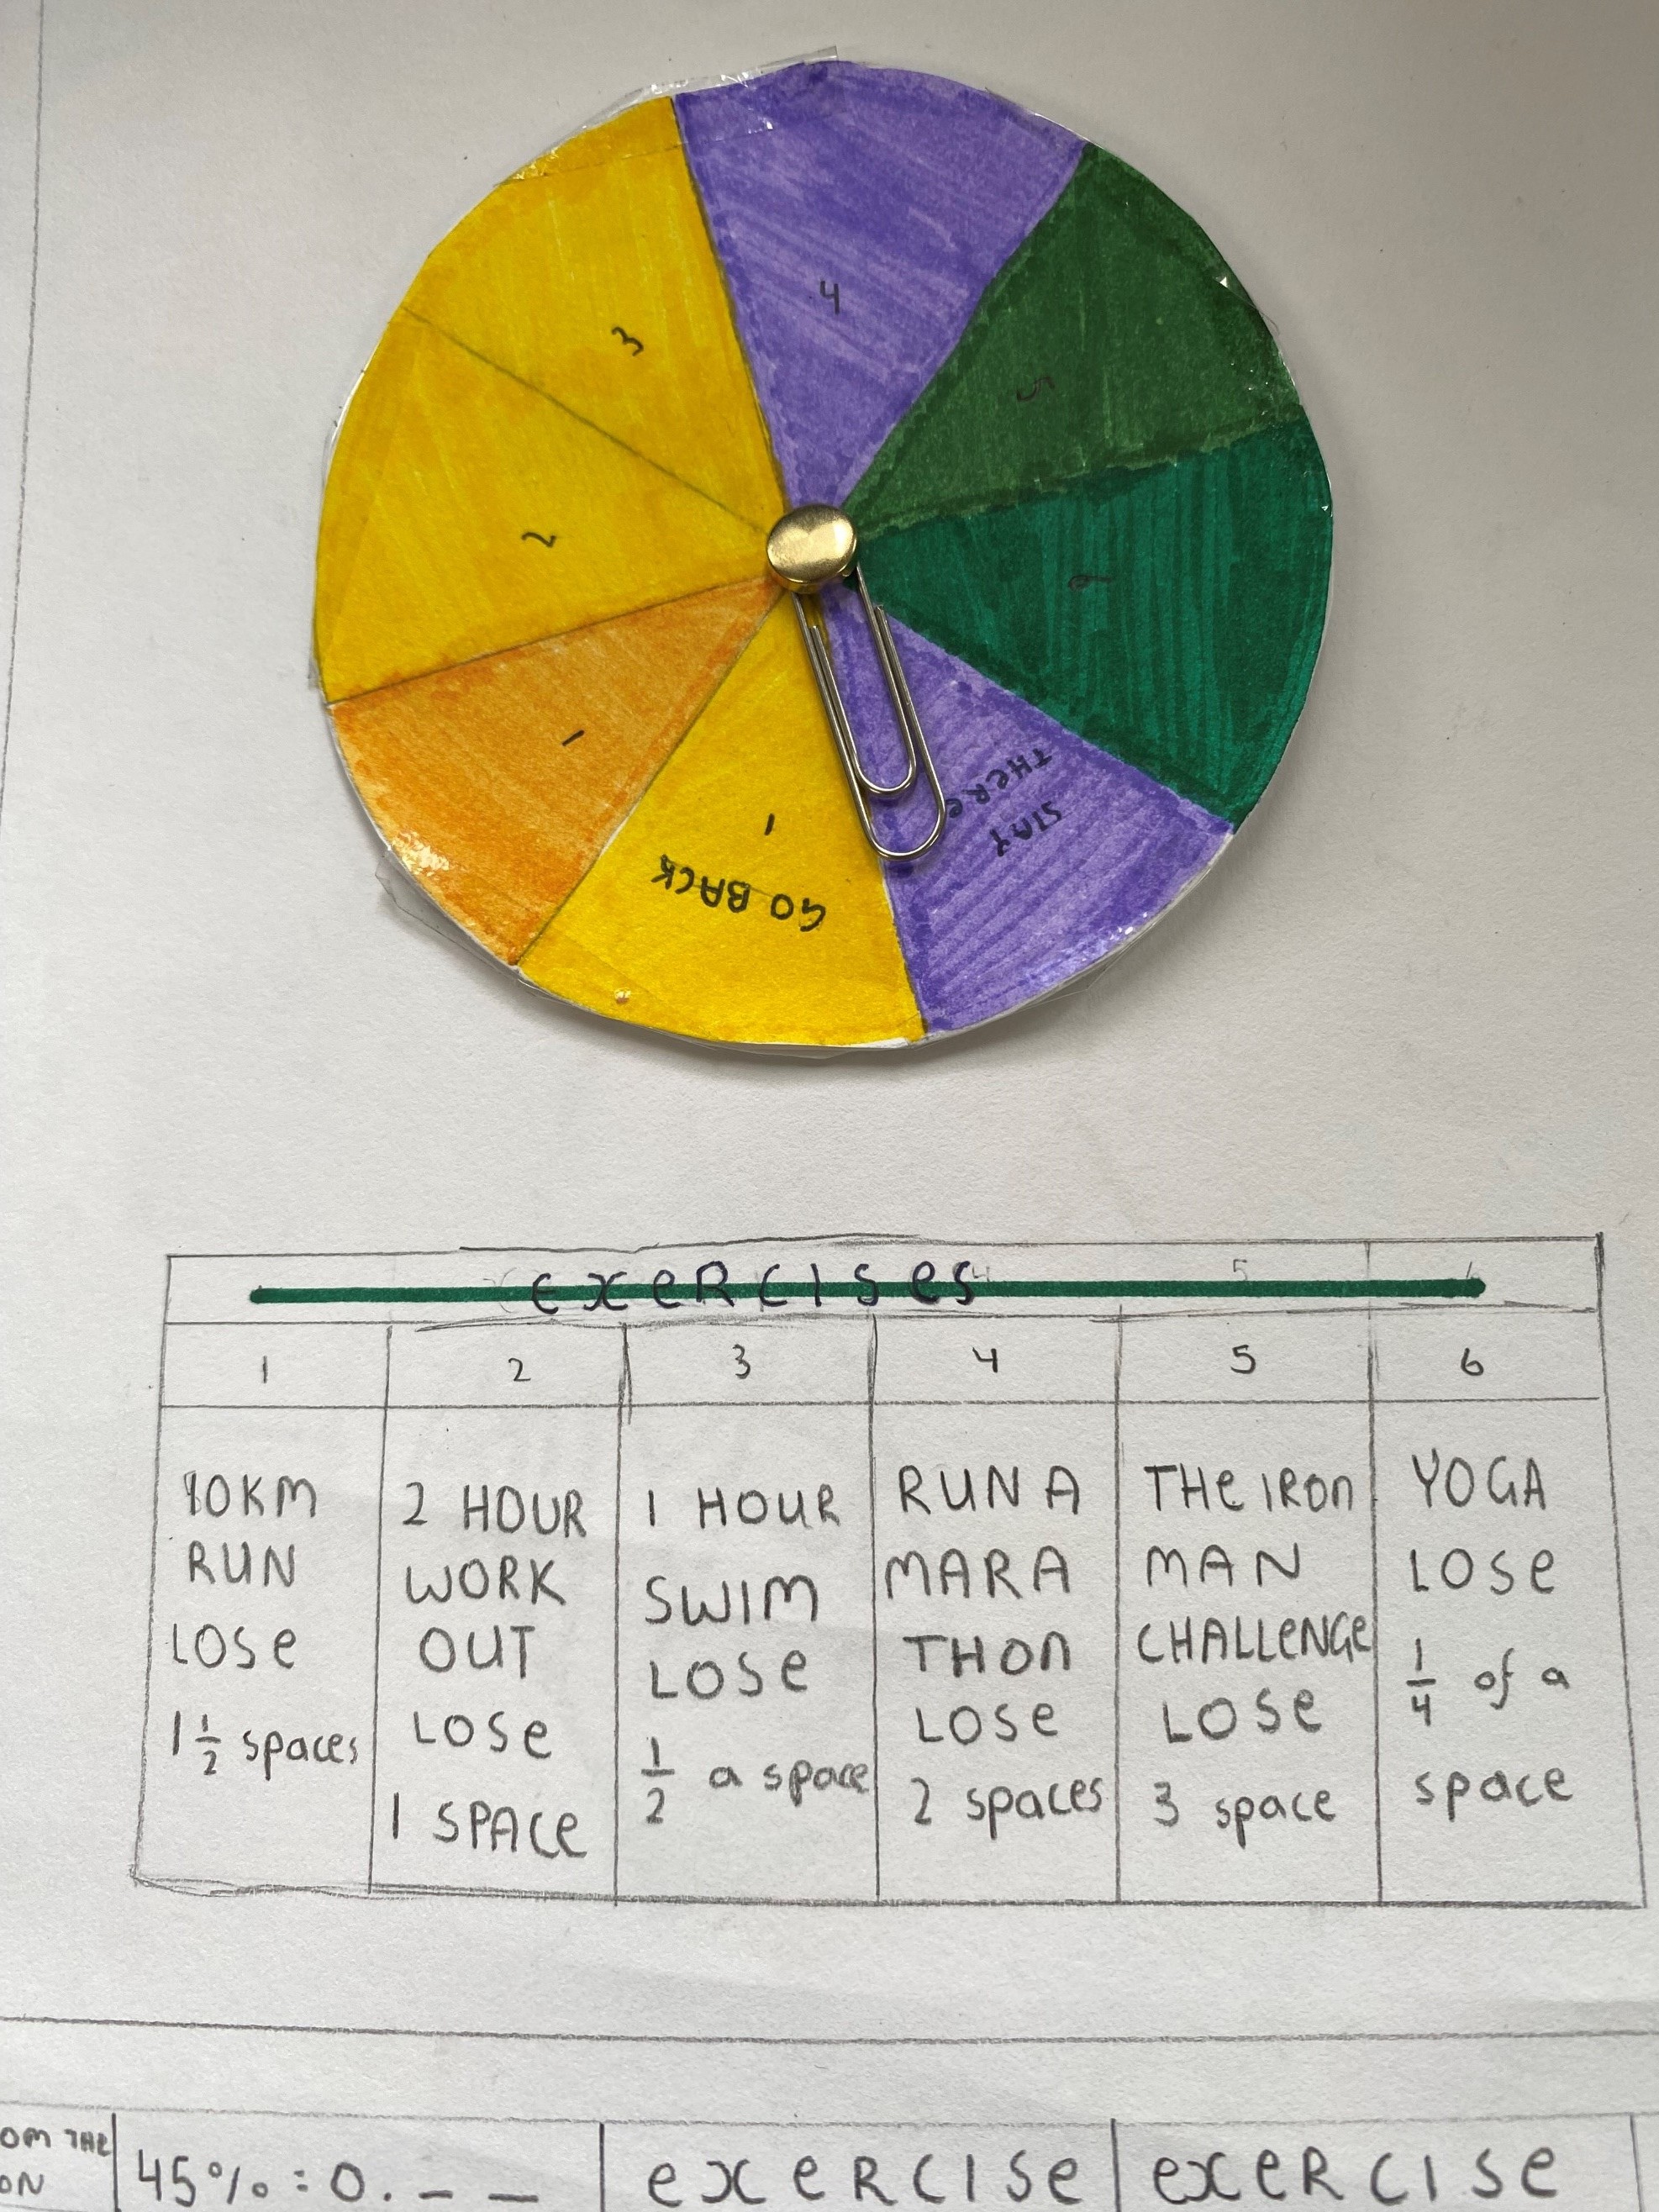 4
3
5
2
6
1
STAY
THERE
1
GO BACK
exeRCIses
1
2
3
4
5
6
10KM
RUN
LOSe
1 1/2 spaces
2 HOUR
WORK
OUT
LOSe
1 SPACe
1 HOUR
SWIM
LOSe
1/2 a space
RUN A
MARA
THON
LOSe
2 spaces
THe IRON
MAN
CHALLeNGe
LOSe
3 space
YOGA
LOSe
1/4 of a
space
OM THe
ON
45% = 0. _ _
exeRCISe
exeRCISe